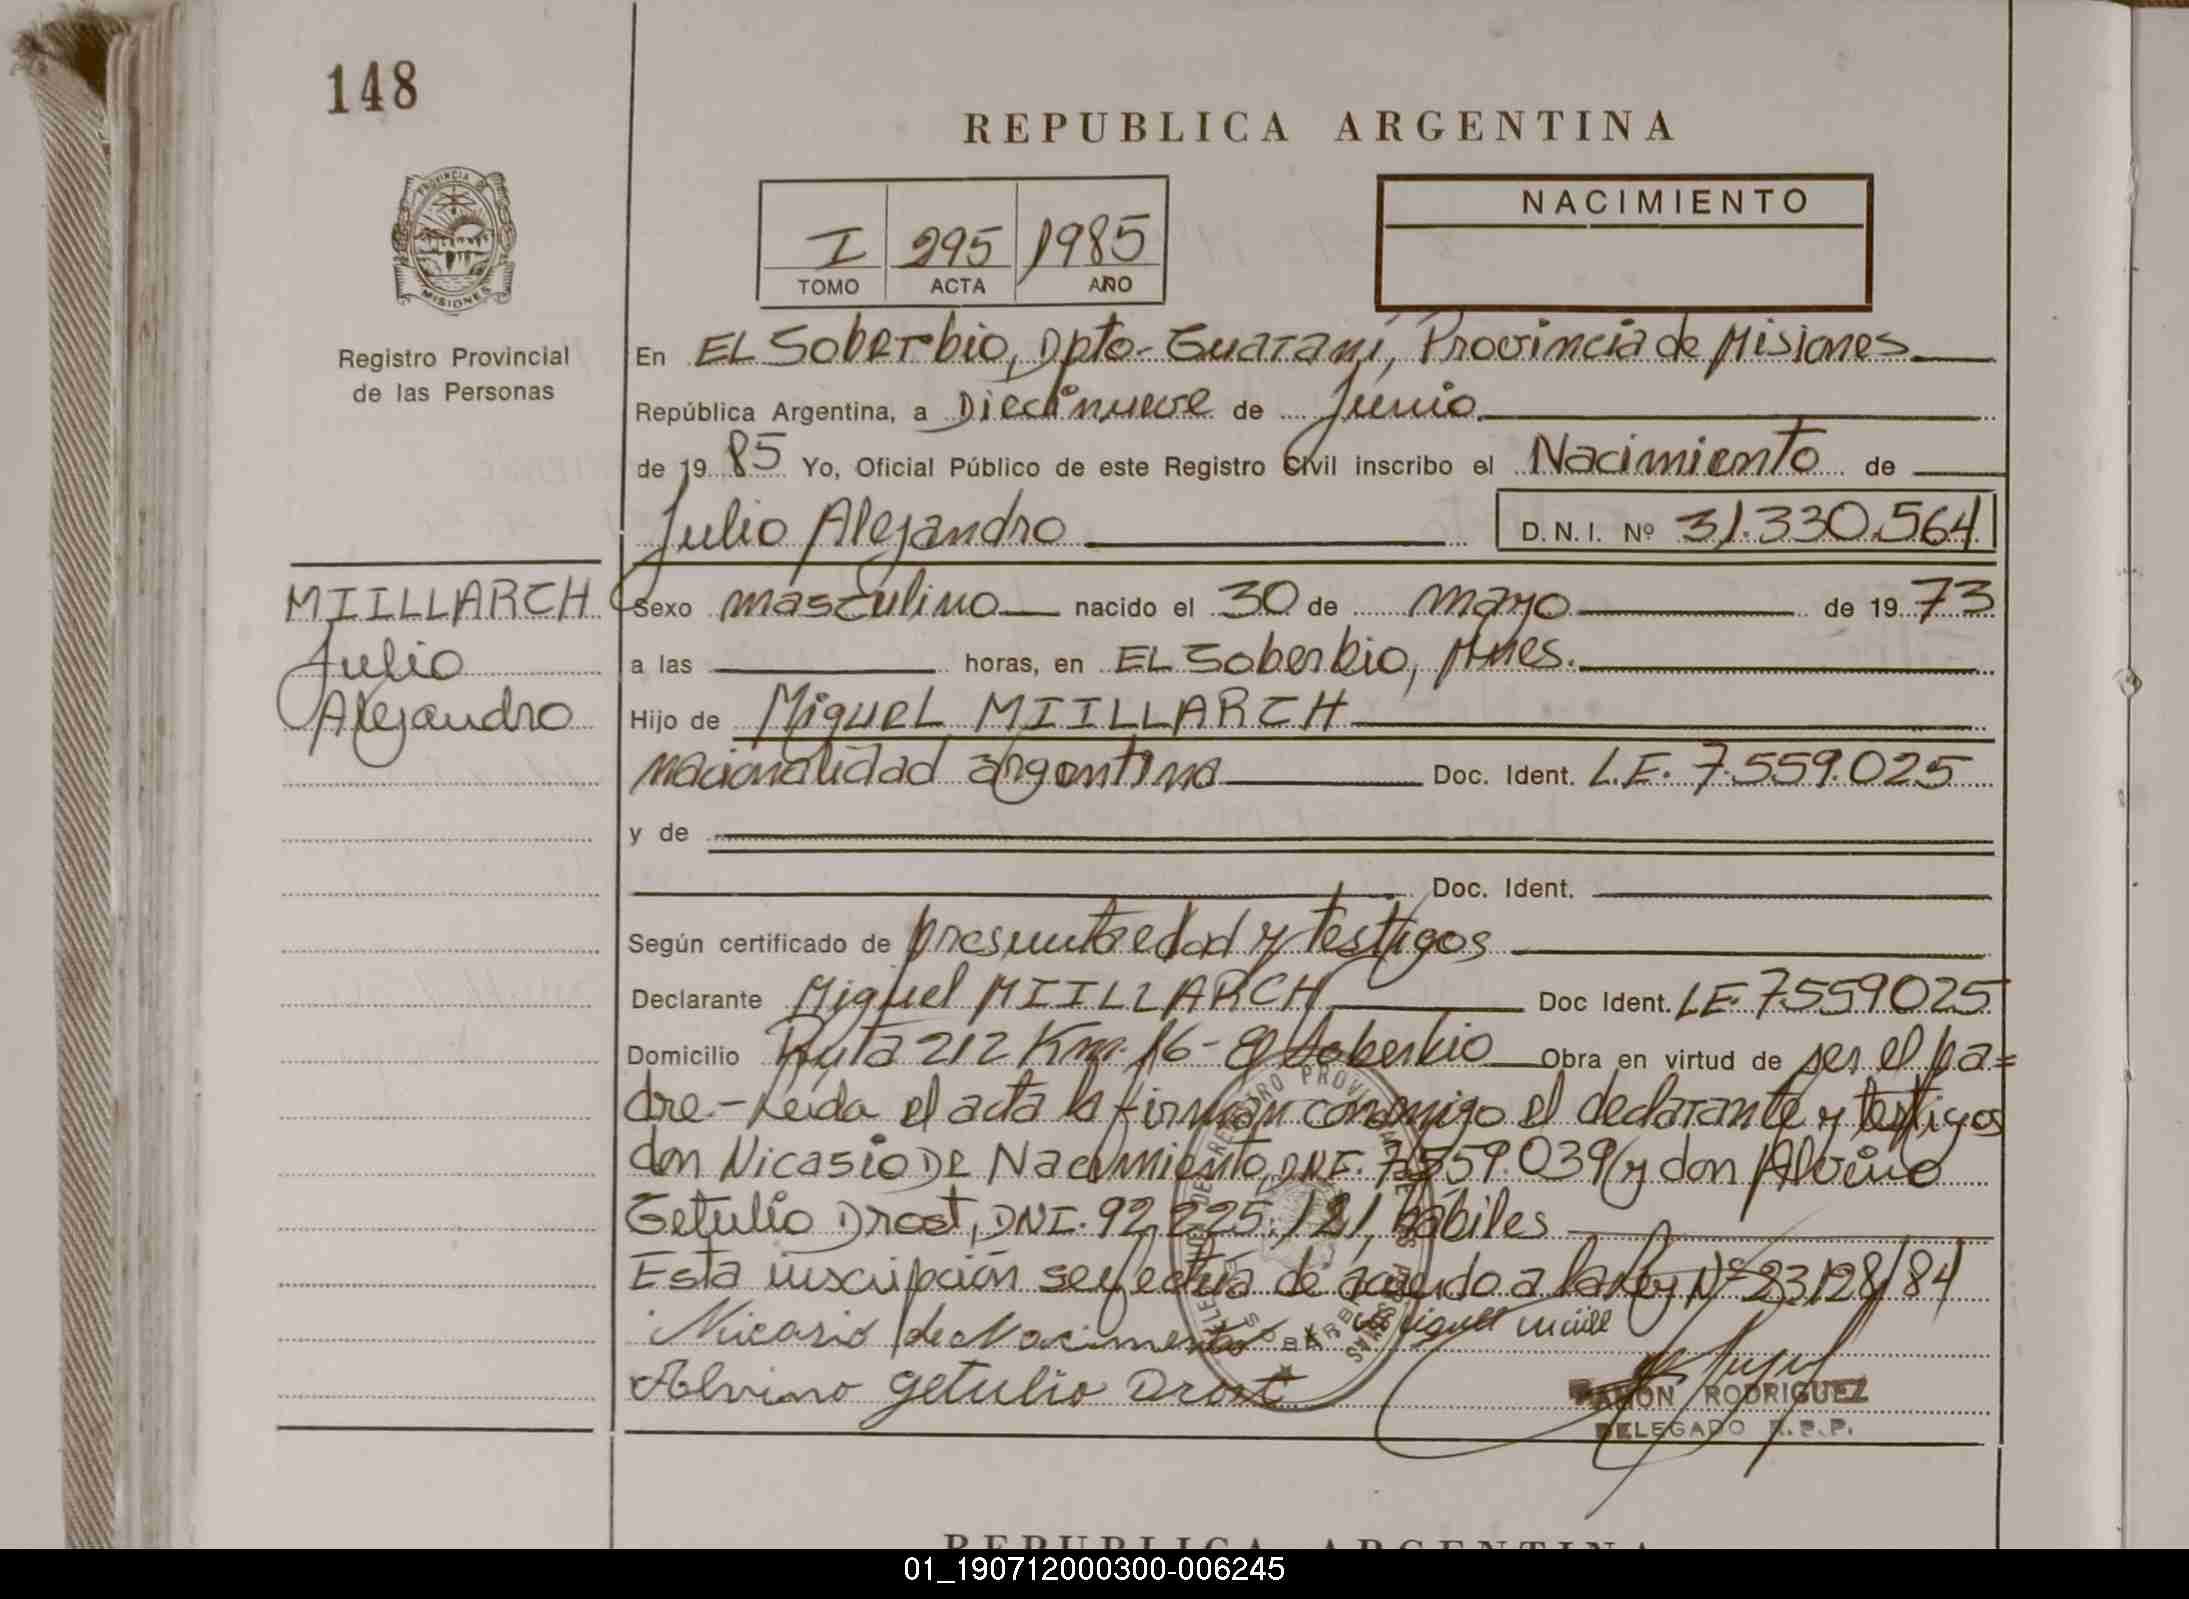 148
REPUBLICA ARGENTINA
PROVINCIA DE
MISIONES
Registro Provincial
de las Personas
I 295 1985
TOMO ACTA AÑO
NACIMIENTO
En EL Soberbio, Dpto- Guaraní, Provincia de Misiones
República Argentina, a Diecinueve de Junio
de 1985 Yo, Oficial Público de este Registro Civil inscribo el Nacimiento de
Julio Alejandro D. N. I. Nº 31.330.564
MIILLARCH
Julio
Alejandro
Sexo masculino nacido el 30 de mayo de 1973
a las horas, en EL Soberbio, Mnes.
Hijo de Miguel MIILLARCH
nacionalidad argentina Doc. Ident. L.E. 7.559.025
y de
Doc. Ident.
Según certificado de presunta edad y testigos
Declarante Miguel MIILLARCH Doc Ident. LE. 7.559.025
Domicilio Ruta 212 Km. 16 - El Soberbio Obra en virtud de ser el pa=
dre.- Leida el acta la firman conmigo el declarante y testigos
don Nicasio De Nacimiento, DNI. 7.559.039 y don Alvino
Getulio Drost, DNI. 92.225.121, hábiles
Esta inscripción se efectua de acuerdo a la Ley Nº 23.128/84
Nicasio de Nacimento Miguel
Alvino getulio Drost
RAMON RODRIGUEZ
DELEGADO R.P.P.
REPUBLICA ARGENTINA
01_190712000300-006245